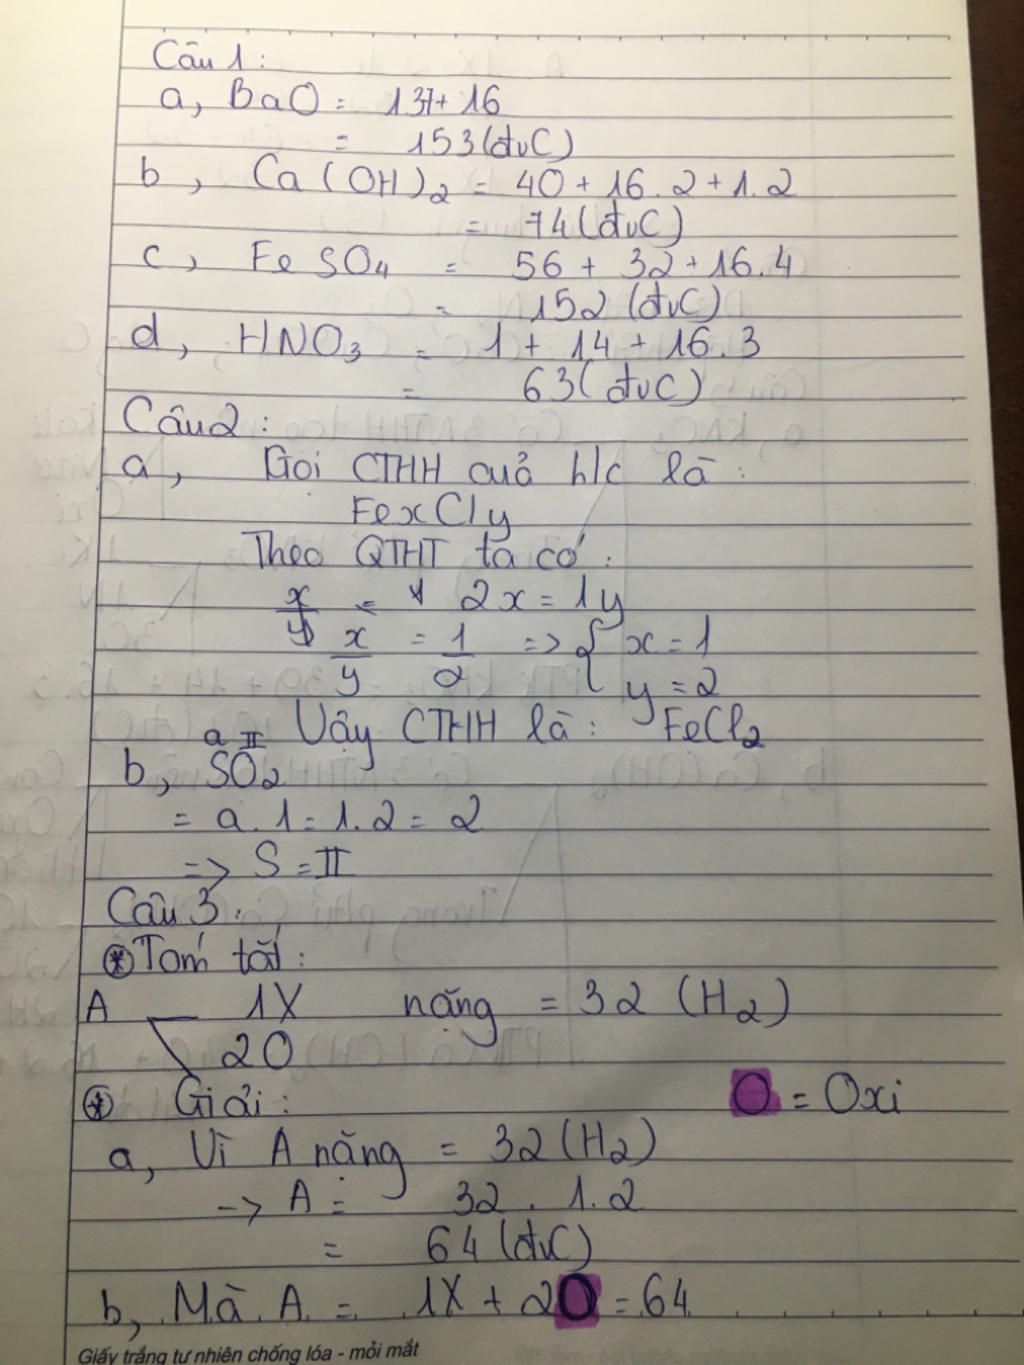 Câu 1:
a, BaO = 137+16
= 153(đvC)
b, Ca(OH)2 = 40+16.2+1.2
= 74(đvC)
c, FeSO4 = 56 + 32+16.4
= 152(đvC)
d, HNO3 = 1 + 14 + 16.3
= 63(đvC)
Câu2:
a, Gọi CTHH cuả h/c là:
FexCly
Theo QTHT ta có:
2x=1y
x/y = 1/2 => { x=1
y=2
Vậy CTHH là: FeCl2
a II
b, SO2
= a.1=1.2=2
=> S=II
Câu 3:
* Tóm tắt:
A 1X nặng = 32 (H2)
2O
* Giải: O = Oxi
a, Vì A nặng = 32(H2)
-> A = 32.1.2
= 64(đvC)
b, Mà A = 1X + 2O = 64
Giấy trắng tự nhiên chống lóa - mỏi mắt